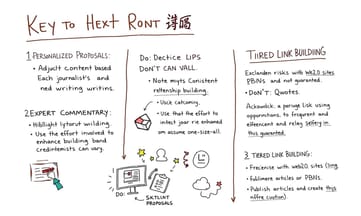 KEY TO HEXT RONT
1 PERSONALIZED PROPOSALS:
• Adjuclt content based
Each jorunalit's and
ned writing writins.
2 EXPERT COMMENTARY:
• Hibllight lytorut wuilding.
• Use the effort involved to
enhance building band
credintemists can vary.
Do: Dectice LIPS
DON'T CAN VALL.
• Note myts Canistent
reltenship building.
• Uolk catcoming.
• Use that the effort to
intact jour rie enhamed
am assume one-size-all.
DO:
SKTLUNT
PROPOSALS
TIIRED LINK BUILDING
Exclanden risks with Wb2.0 sites
PBiNs and not guaranted.
• DON'T: Quotes.
Ackowlick, a peruge Lisk using
opparnitions, to frequent and
efferencent and relay
this guaranted.
3. TIERED LINK BUILDING:
• Frecienise with web2.0 sites
• Fublimare articles or PBNs.
• Publish articles and create this